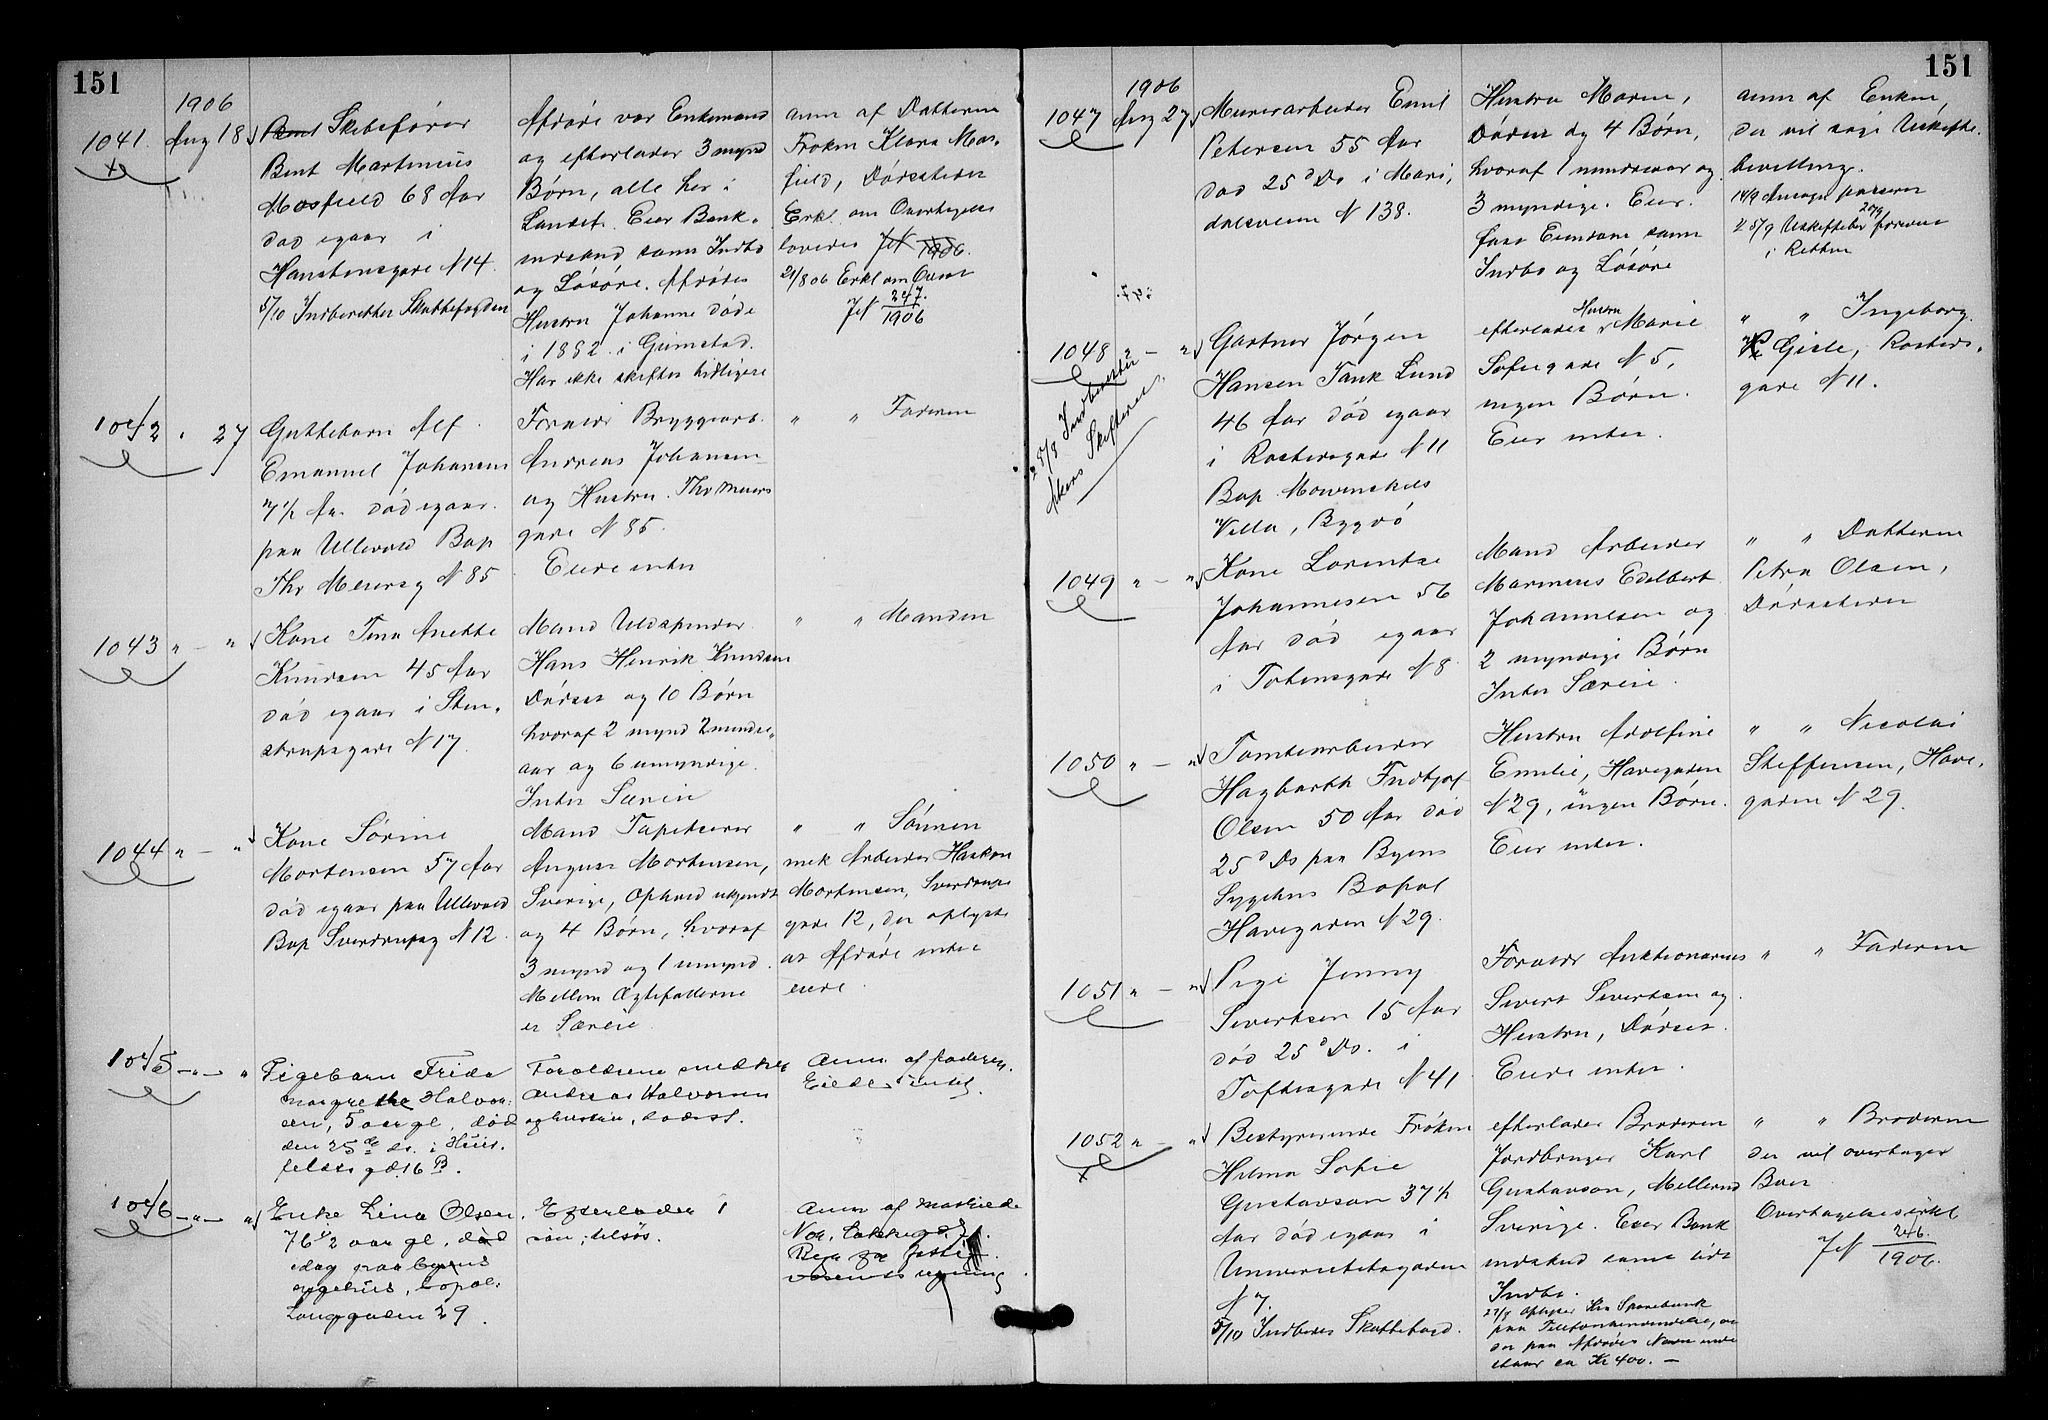 151
1906
1041. Aug 18
Skibsfører
Bent Martinius
Mosfield 68 Aar
død igaar i
Haustensgade N 14.
5/10 Indberettet Skattefogden
Afdøde var Enkemand
og efterlader 3 mynd
Børn, alle her i
Landet. Eier Bank-
indskud samt Indbo
og Løsøre. Afdødes
Hustru Johanne døde
i 1892 i Grimstad.
Har ikke skiftet tidligere
anm af Datteren
Frøken Klara Mos-
field, Dødsstedet
Erkl. om Overtagelse
lovedes JN 1906.
21/8 06 Erkl om Overt
JN 247/1906
1042 " 27
Guttebarn Alf
Emanuel Johansen
7 1/2 Aar død igaar
paa Ullevold Bop
Thv Meiersg N 85
Forældre Bryggeriarb.
Andreas Johansen
og Hustru Thv Meiers
gade N 85.
Eiede intet
" " Faderen
1043 " — "
Kone Tina Anette
Knudsen 45 Aar
død igaar i Sten-
strupsgade N 17.
Mand Uldspinder
Hans Henrik Knudsen
Dødsst og 10 Børn
hvoraf 2 mynd 2 mindre-
aar og 6 umyndige.
Intet Særeie
" " Manden
1044 " — "
Kone Sørine
Mortensen 57 Aar
død igaar paa Ullevold
Bop Sverdrupsg N 12.
Mand Tapetserer
August Mortensen,
Sverige, Ophold ukjendt
og 4 Børn, hvoraf
3 mynd og 1 umynd.
Mellem Ægtefællerne
er Særeie.
" " Sønnen
mek Arbeider Haakon
Mortensen, Sverdrups
gade 12, der oplyste
at Afdøde intet
eiede.
1045 — " — "
Pigebarn Frida
Margrethe Halvor-
sen, 5 aar gl, død
den 25de ds. i Huit-
feldts gd. 16 B.
Forældrene snedker
Andreas Halvorsen
og hustru, dødsst.
Anm af faderen.
Eiede intet.
1046 — " — "
Enke Lina Olsen,
76 1/2 aar gl, død
idag paa byens
sygehus, bopæl:
Langgaden 29.
Efterlader 1
søn; tilsøs.
Anm af
151
1906
1047 Aug 27
Murerarbeider Emil
Petersen 55 Aar
død 25d Ds i Mari-
dalsveien N 138.
Hustru Maren,
Dødsst og 4 Børn,
hvoraf 1 mindreaar og
3 myndige. Eier
fast Eiendom samt
Indbo og Løsøre
anm af Enken,
der vil søge Uskifte-
bevilling.
i Retten
1048 — "
Gartner Jørgen
Hansen Tank Lund
46 Aar død igaar
i Rostedsgade N 11
Bop Mowinckels
Villa, Bygdø
Akers Skifteret
efterlader Hustru Marie
Sofiegade N 5,
ingen Børn.
Eier intet.
" " Ingeborg
Gisle, Rosteds-
gade N 11.
1049 " — "
Kone Lorentze
Johannesen 56
Aar død igaar
i Totensgade N 8
Mand Arbeider
Marinius Edelbert
Johannesen og
2 myndige Børn
Intet Særeie.
" " Datteren
Petra Olsen,
Dødsstedet
1050 " — "
Tomtearbeider
Hagbarth Fridtjof
Olsen 50 Aar død
25d Ds paa Byens
Sygehus Bopæl
Havegaden N 29.
Hustru Adolfine
Emilie, Havegaden
N 29, ingen Børn.
Eier intet.
" " Nicolai
Steffensen, Have-
gaden N 29.
1051 " — "
Pige Jenny
Sivertsen 15 Aar
død 25d Ds. i
Toftesgade N 41
Forældr Auktionarius
Sivert Sivertsen og
Hustru, Dødsst.
Eiede intet.
" " Faderen
1052 " — "
Bestyrerinde Frøken
Hilma Sofie
Gustavson 37 1/2
Aar død igaar i
Universitetsgaden
N 7.
5/10 Indberet Skattefogd.
efterlader Broderen
Jordbruger Karl
Gustavson, Mellerud
Sverige. Eier Bank
indskud samt lidt
Indbo.
27/9 oplyser Kra Sparebank
paa Telefonhenvendelse, at
der paa Afdødes Navn inde
staar ca Kr 400. —
" " Broderen
der vil overtage
Boet
Overtagelseserkl
JN 246/1906.